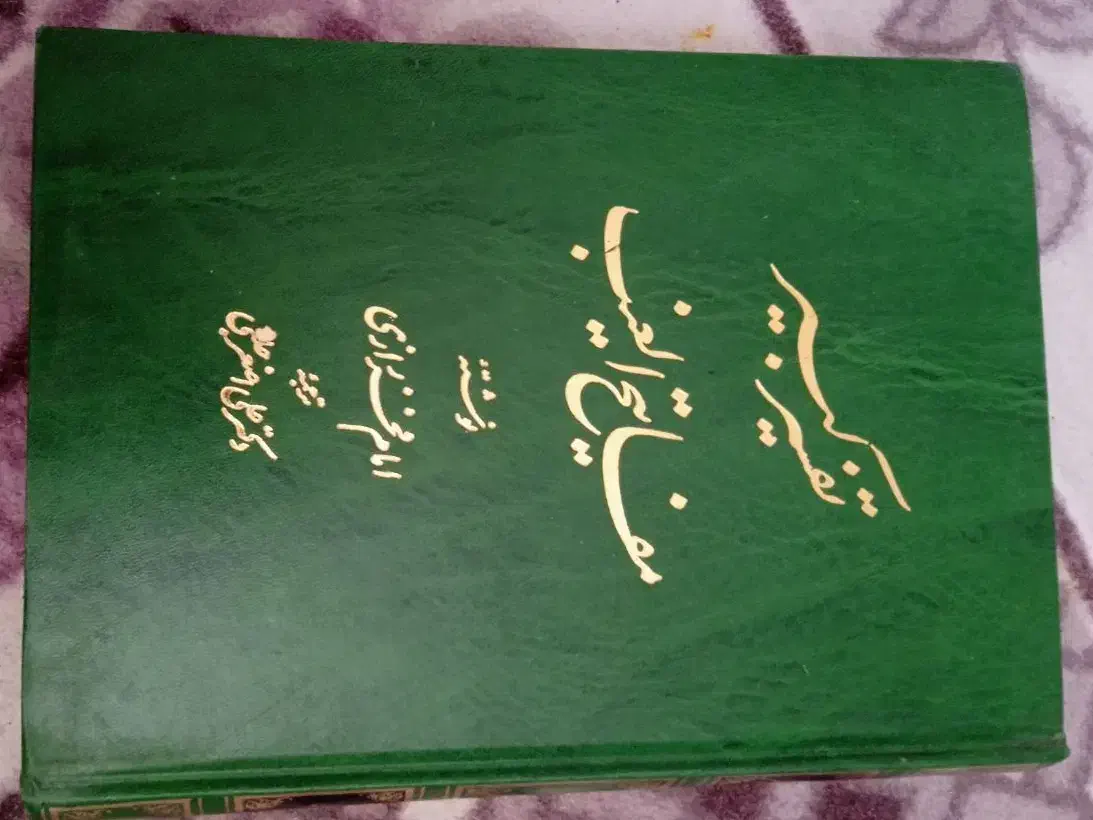 تفسیر کبیر
مفاتیح الغیب
نوشته
امام فخر رازی
ترجمه
دکتر علی اصغر حلبی